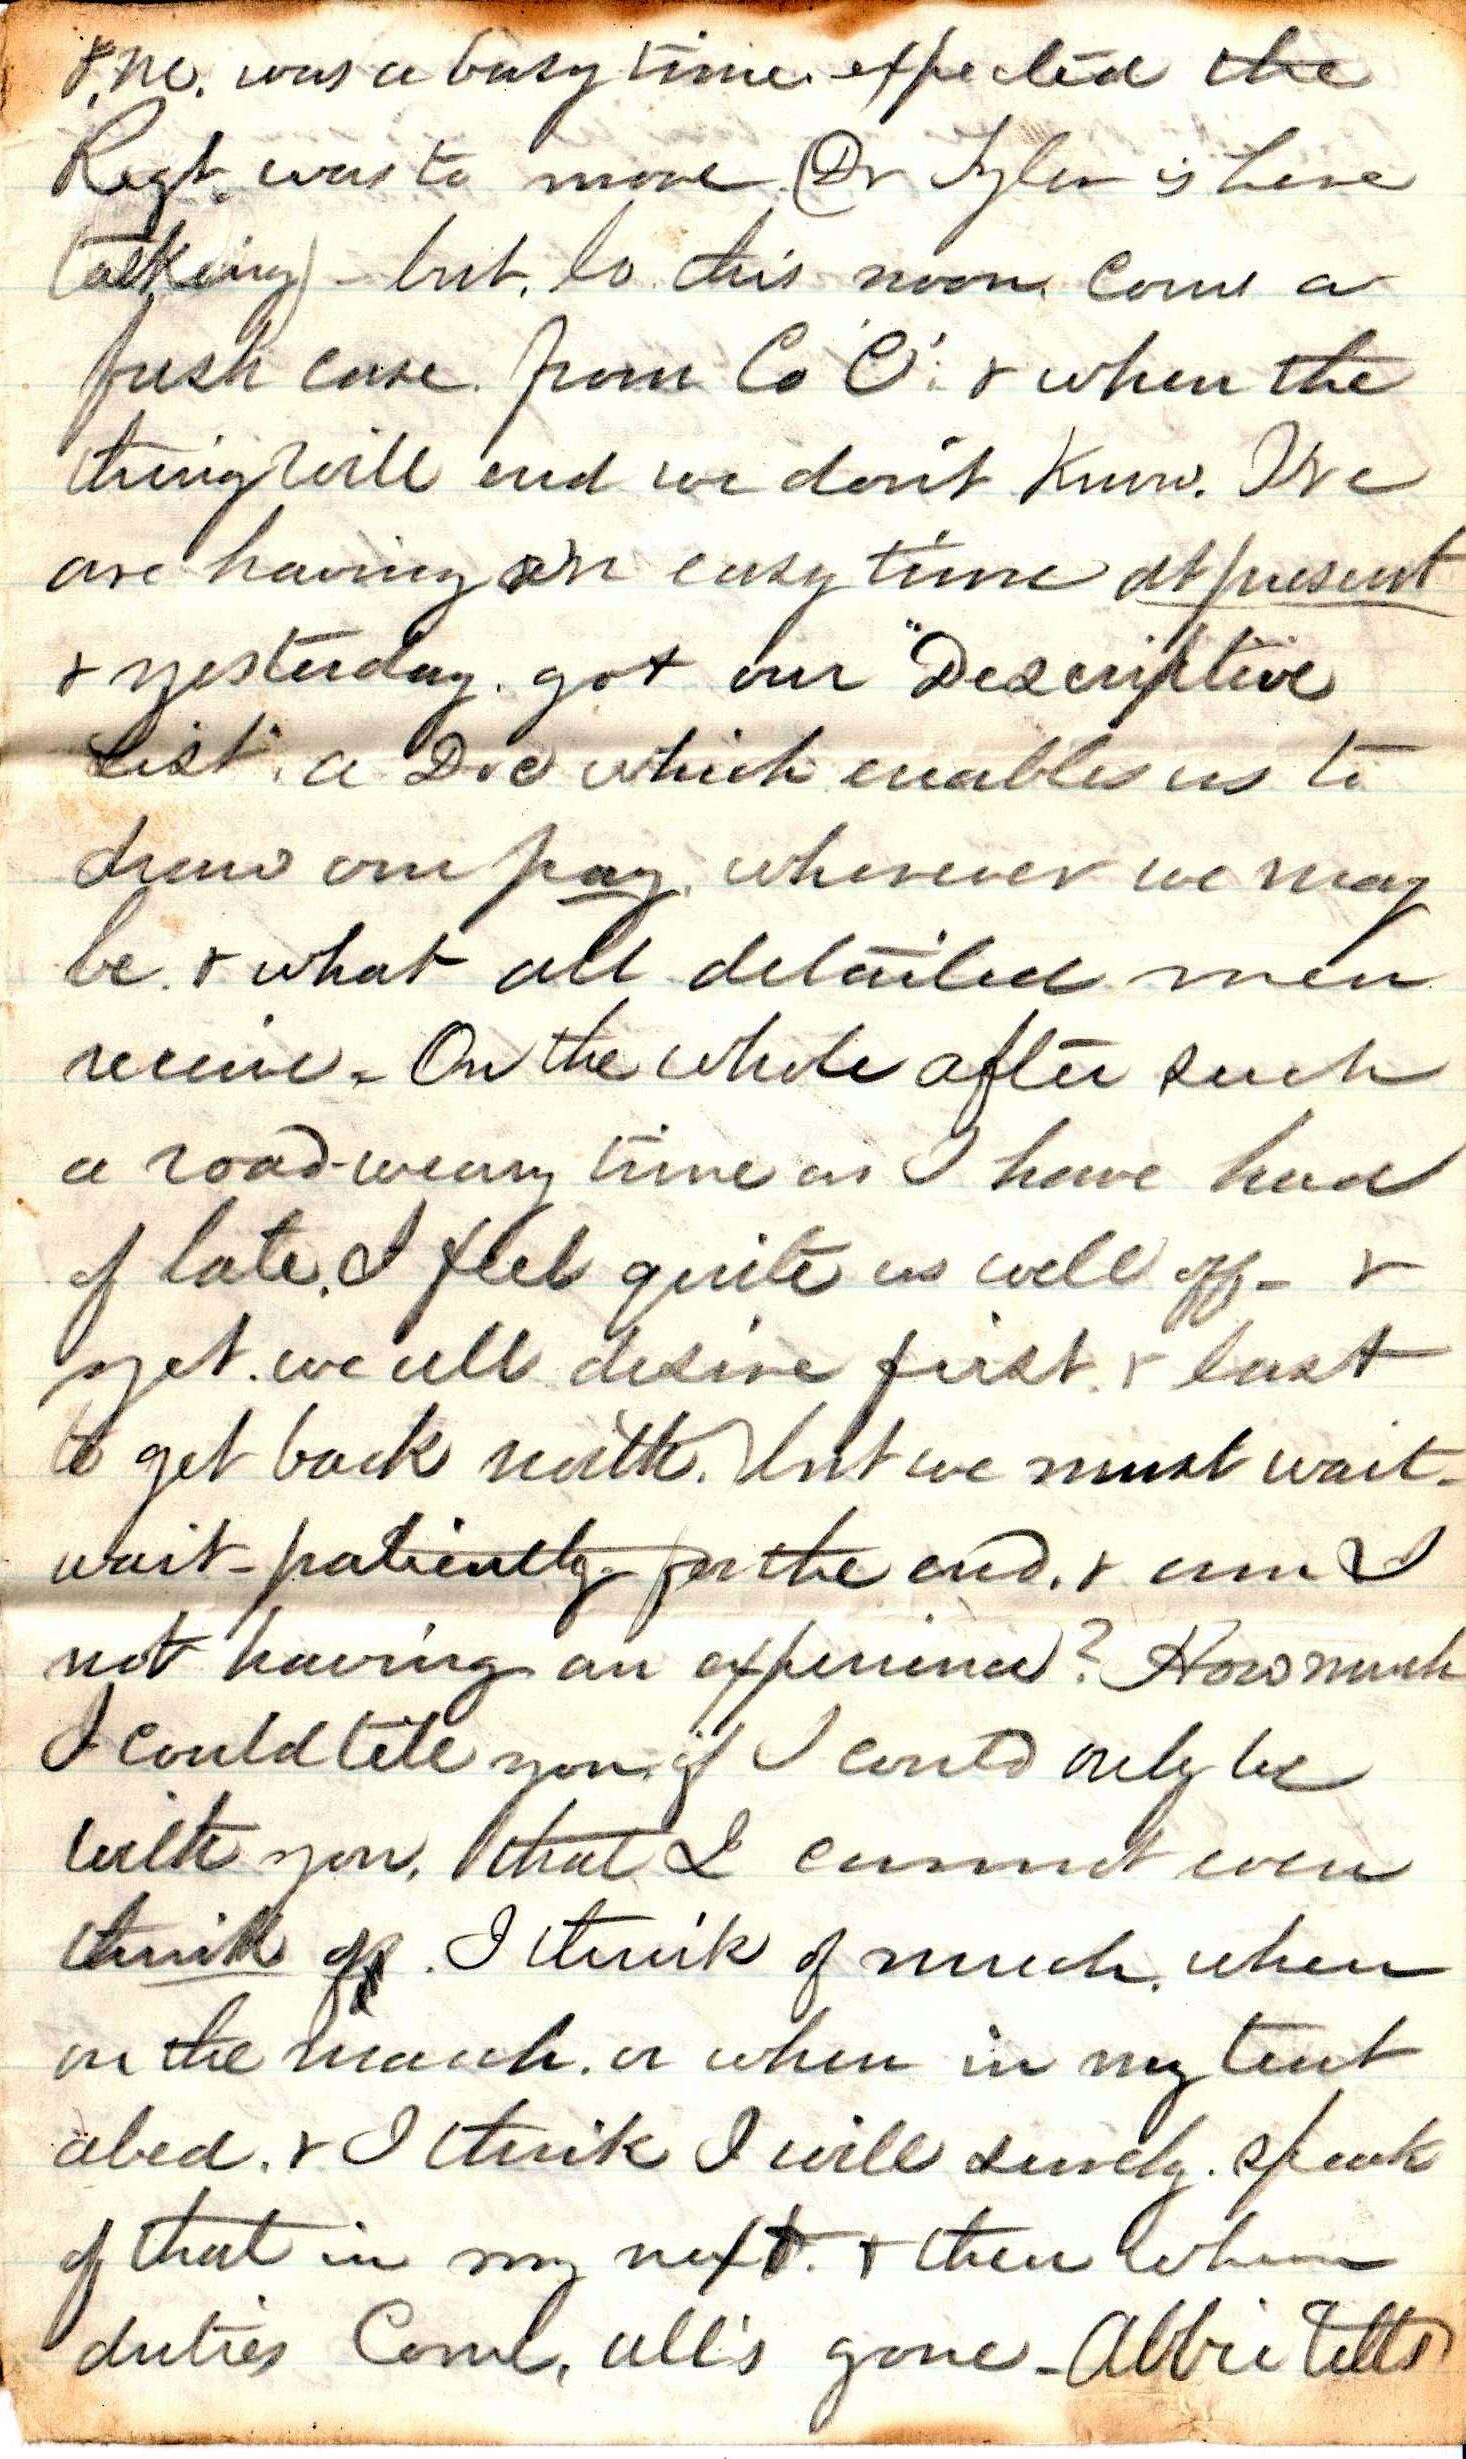 & Me. was a busy time. expected the
Regt. was to move (Dr Tyler is here
talking) - but, lo this noon. Come a
fresh case. from Co 'C'. & when the
thing will end we don't Know. We
are having an easy time at present
& yesterday. got our "Descriptive
List". a Doc which enables us to
draw our pay. wherever we may
be. & what all detailed men
receive. On the whole after such
a road-weary time as I have had
of late. I feel quite as well off - &
yet. we all desire first. & last
to get back north. but we must wait -
wait - patiently - for the end. & am I
not having an experience? How much
I could tell you. if I could only be
with you. that I cannot even
think of. I think of much. when
on the march. or when in my tent
abed. & I think I will surely. speak
of that in my next. & then when
duties Come, all's gone - Abbie tells